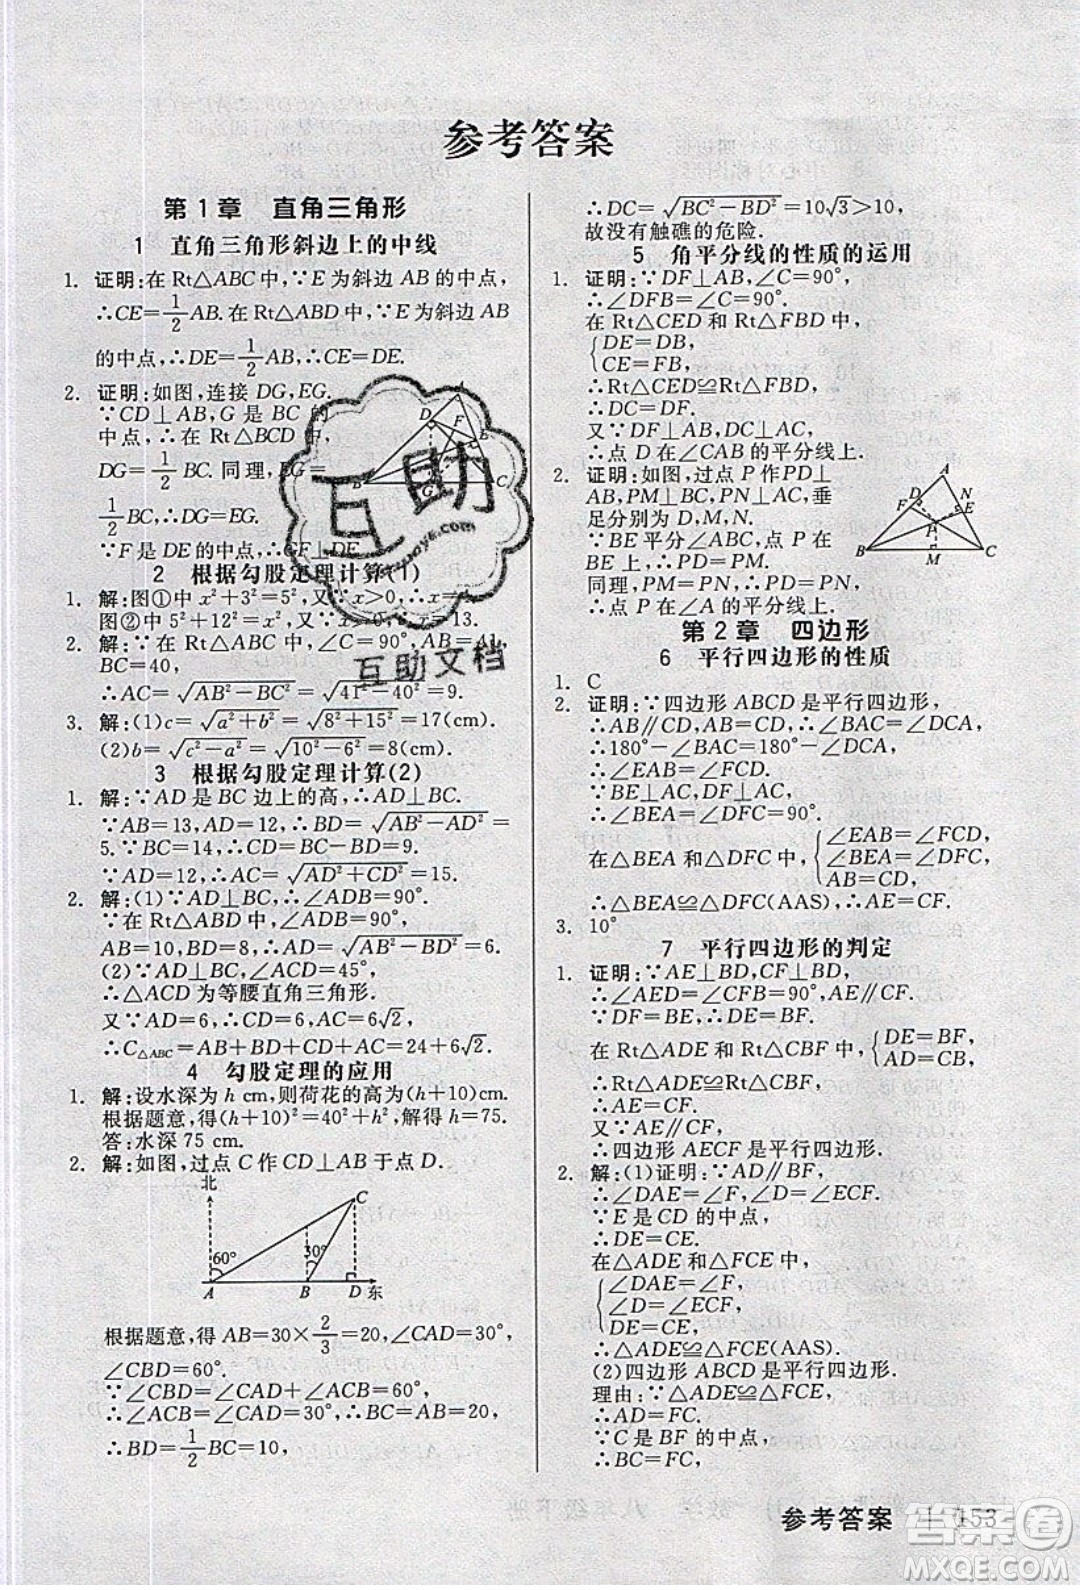 参考答案
第1章 直角三角形
1 直角三角形斜边上的中线
1. 证明:在 Rt△ABC 中,∵E 为斜边 AB 的中点,
∴CE=1/2 AB. 在 Rt△ABD 中,∵E 为斜边 AB
的中点,∴DE=1/2 AB,∴CE=DE.
2. 证明:如图,连接 DG,EG.
∵CD⊥AB,G 是 BC 的
中点,∴在 Rt△BCD 中,
DG=1/2 BC. 同理,EG=
1/2 BC,∴DG=EG.
∵F 是 DE 的中点,∴GF⊥DE.
A
D
F
E
B
G
C
2 根据勾股定理计算(1)
1. 解:图①中 x²+3²=5²,又∵x>0,∴x=4.
图②中 5²+12²=x²,又∵x>0,∴x=13.
2. 解:∵在 Rt△ABC 中,∠C=90°,AB=41,
BC=40,
∴AC=√(AB²−BC²)=√(41²−40²)=9.
3. 解:(1)c=√(a²+b²)=√(8²+15²)=17(cm).
(2)b=√(c²−a²)=√(10²−6²)=8(cm).
3 根据勾股定理计算(2)
1. 解:∵AD 是 BC 边上的高,∴AD⊥BC.
∵AB=13,AD=12,∴BD=√(AB²−AD²)=
5. ∵BC=14,∴DC=BC−BD=9.
∵AD=12,∴AC=√(AD²+CD²)=15.
2. 解:(1)∵AD⊥BC,∴∠ADB=90°.
∵在 Rt△ABD 中,∠ADB=90°,
AB=10,BD=8,∴AD=√(AB²−BD²)=6.
(2)∵AD⊥BC,∠ACD=45°,
∴△ACD 为等腰直角三角形.
又∵AD=6,∴CD=6,AC=6√2,
∴C△ABC=AB+BC+AC=24+6√2.
4 勾股定理的应用
1. 解:设水深为 h cm,则荷花的高为(h+10)cm.
根据题意,得(h+10)²=40²+h²,解得 h=75.
答:水深 75 cm.
2. 解:如图,过点 C 作 CD⊥AB 于点 D.
北
C
60°
30°
A
B
D
东
根据题意,得 AB=30×2/3=20,∠CAD=30°,
∠CBD=60°.
∵∠CBD=∠CAD+∠ACB,
∴∠ACB=∠CAD=30°,∴BC=AB=20,
∴BD=1/2 BC=10,
∴DC=√(BC²−BD²)=10√3>10,
故没有触礁的危险.
5 角平分线的性质的运用
1. 证明:∵DF⊥AB,∠C=90°,
∴∠DFB=∠C=90°.
在 Rt△CED 和 Rt△FBD 中,
{DE=DB,
CE=FB,
∴Rt△CED≌Rt△FBD,
∴DC=DF.
又∵DF⊥AB,DC⊥AC,
∴点 D 在∠CAB 的平分线上.
2. 证明:如图,过点 P 作PD⊥
AB,PM⊥BC,PN⊥AC,垂
足分别为 D,M,N.
∵BE 平分∠ABC,点 P 在
BE 上,∴PD=PM.
同理,PM=PN,∴PD=PN,
∴点 P 在∠A 的平分线上.
A
D
N
F
E
P
B
M
C
第2章 四边形
6 平行四边形的性质
1. C
2. 证明:∵四边形 ABCD 是平行四边形,
∴AB∥CD,AB=CD,∴∠BAC=∠DCA,
∴180°−∠BAC=180°−∠DCA,
∴∠EAB=∠FCD.
∵BE⊥AC,DF⊥AC,
∴∠BEA=∠DFC=90°.
在△BEA 和△DFC 中,{∠EAB=∠FCD,
∠BEA=∠DFC,
AB=CD,
∴△BEA≌△DFC(AAS),∴AE=CF.
3. 10°
7 平行四边形的判定
1. 证明:∵AE⊥BD,CF⊥BD,
∴∠AED=∠CFB=90°,AE∥CF.
∵DF=BE,∴DE=BF.
在 Rt△ADE 和 Rt△CBF 中,{DE=BF,
AD=CB,
∴Rt△ADE≌Rt△CBF,
∴AE=CF.
又∵AE∥CF,
∴四边形 AECF 是平行四边形.
2. 解:(1)证明:∵AD∥BF,
∴∠DAE=∠F,∠D=∠ECF.
∵E 是 CD 的中点,
∴DE=CE.
在△ADE 和△FCE 中,
{∠DAE=∠F,
∠D=∠ECF,
DE=CE,
∴△ADE≌△FCE(AAS).
(2)四边形 ABCD 是平行四边形.
理由:∵△ADE≌△FCE,
∴AD=FC.
∵C 是 BF 的中点,
∴BC=FC,
参考答案 153
互助
互助文档
答案圈
MXQE.COM